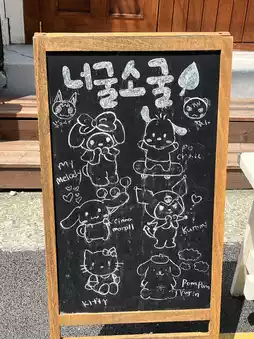 너굴소굴
My
Melody
PO
Cinna
moroll
Kuromi
Kitty
PomPom
Purin